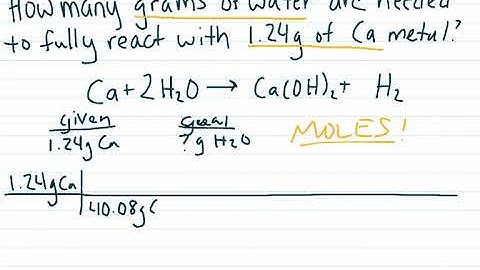 How many grams of water are needed
to fully react with 1.24g of Ca metal?
Ca + 2H₂O → Ca(OH)₂ + H₂
given goal MOLES!
1.24g Ca ? g H₂O
1.24g Ca
40.08g C